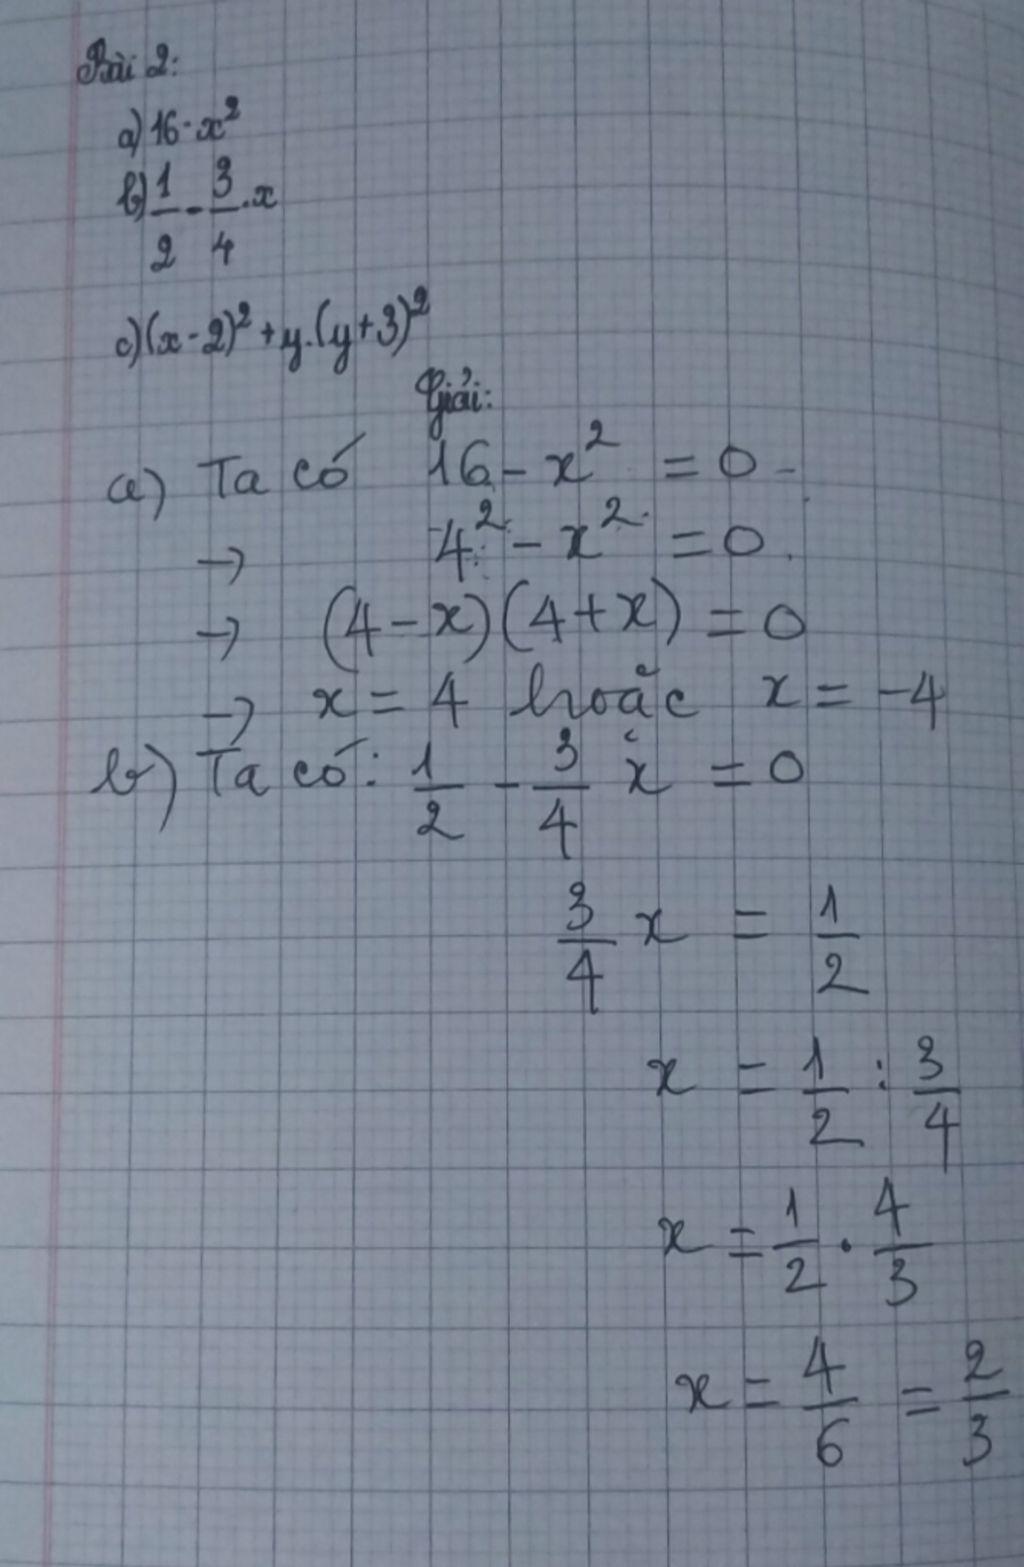 Bài 2:
a) 16 - x²
b) 1/2 - 3/4 . x
c) (x - 2)² + y.(y + 3)²
Giải:
a) Ta có 16 - x² = 0
→ 4² - x² = 0
→ (4 - x)(4 + x) = 0
→ x = 4 hoặc x = -4
b) Ta có: 1/2 - 3/4 x = 0
3/4 x = 1/2
x = 1/2 : 3/4
x = 1/2 . 4/3
x = 4/6 = 2/3